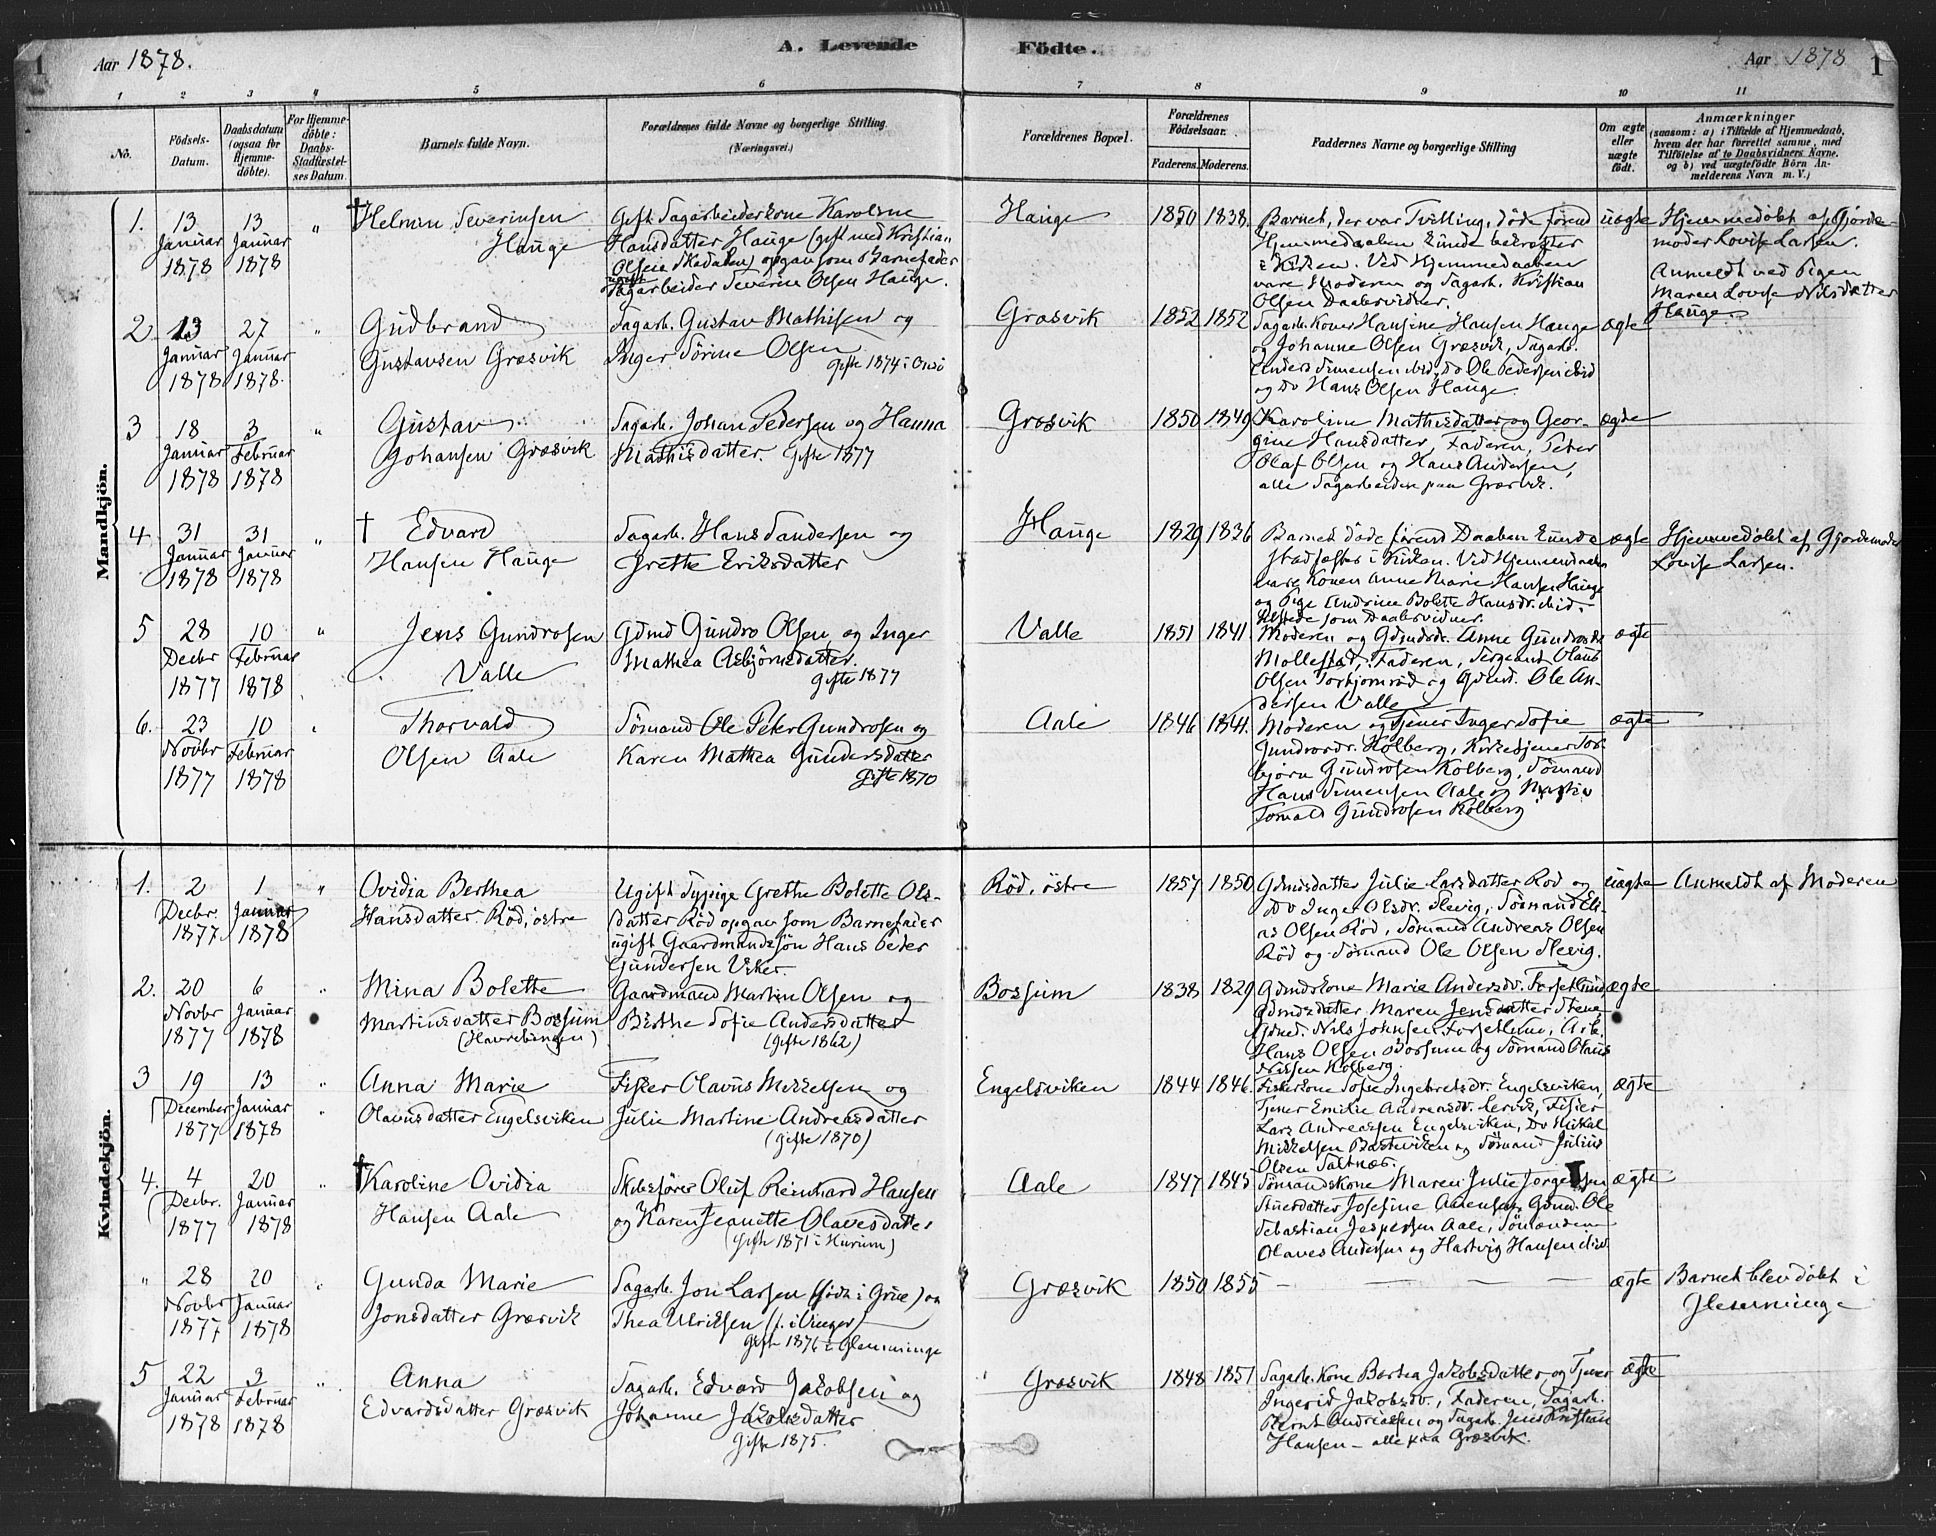 1 Aar 1878. A. Levende Födte. Aar 1878 1
1 2 3 4 5 6 7 8 9 10 11
No.
Födsels-
Datum.
Daabsdatum
(ogsaa for
Hjemme-
döbte).
For Hjemme-
döbte:
Daabs-
Stadfæstel-
ses Datum.
Barnets fulde Navn.
Forældrenes fulde Navne og borgerlige Stilling
(Næringsvei.)
Forældrenes Bopæl.
Forældrenes
Födselsaar.
Faderens. Moderens.
Faddernes Navne og borgerlige Stilling
Om ægte
eller
uægte
födt.
Anmærkninger
(saasom: a) i Tilfælde af Hjemmedaab,
hvem der har forrettet samme, med
Tilföielse af to Daabsvidners Navne.
og b) ved uægtefödte Börn An-
melderens Navn m. V.)
Mandkjön.
1. 13
Januar
1878
13
Januar
1878
"
† Helmer Severinsen
Hauge
Gift Sagarbeiderkone Karoline
Hansdatter Hauge (gift med Kristian
Olsen Skadalen) opgav som Barnefader
ugift
Sagarbeider Severin Olsen Hauge.
Hauge
1850 1838.
Barnet, der var Tvilling, døde förend
Hjemmedaaben kunde bekræftes
i Kirken. Ved Hjemmedaaben
vare Moderen og Sagarb. Kristian
Olsen Daabsvidner.
uægte
Hjemmedøbt af Gjorde-
moder Lovise Larsen.
Anmeldt ved Pigen
Maren Lovise Nilsdatter
Hauge
2 13
Januar
1878
27
Januar
1878.
"
Gudbrand
Gustavsen Græsvik
Sagarb. Gustav Mathisen og
Inger Sörine Olsen
Gifte 1874 i Onsö
Græsvik
1852 1852
Sagarb. Koner Hansine Hansen Hauge
og Johanne Olsen Græsvik, Sagarb.
Anders Simensen ibid, Do Ole Pedersen ibid
og Do Hans Olsen Hauge.
ægte
3 18
Januar
1878
3
Februar
1878
"
Gustav
Johansen Græsvik
Sagarb. Johan Pedersen og Hanna
Mathisdatter. Gifte 1877
Græsvik
1850 1849
Karoline Mathisdatter og Geor-
gine Hansdatter, Faderen, Peter
Olaf Olsen og Hans Andersen,
alle Sagarbeidere paa Græsvik.
ægte
4 31
Januar
1878
31
Januar
1878
"
† Edvard
Hansen Hauge
Sagarb. Hans Sandersen og
Grethe Eriksdatter
Hauge
1829 1836
Barnet døde förend Daaben kunde
stadfæstes i Kirken. Ved Hjemmedaaben
vare Konen Anne Marie Hansen Hauge
og Pige Andrine Bolette Hansdr. ibid.
tilstede som Daabsvidner.
ægte
Hjemmedøbt af Gjordemoder
Lovise Larsen.
5 28
Decbr
1877
10
Februar
1878
"
Jens Gundrosen
Valle
Gdmd Gundro Olsen og Inger
Mathea Asbjörnsdatter.
Gifte 1877
Valle
1851 1841.
Moderen og Gdmdsdr. Anne Gundrosdr
Mollestad, Faderen, Sergeant Olaus
Olsen Torbjörnröd og Gdmd. Ole An-
dersen Valle
ægte
6. 23
Novbr
1877
10
Februar
1878
Thorvald
Olsen Aale
Sömand Ole Peter Gundrosen og
Karen Mathea Gundersdatter
Gifte 1870
Aale
1846 1841.
Moderen og Tjener Inger Sofie
Gundrosdr. Kölberg, Kirketjener Tor-
björn Gundrosen Kölberg, Sömand
Hans Simensen Aale og
Gundrosen Kölberg
ægte
Kvindekjön.
1. 2
Decbr.
1877
1
Januar
1878
"
Ovidia Berthea
Hansdatter Röd, östre
Ugift Sypige Grethe Bolette Ols-
datter Röd opgav som Barnefader
ugift Gaardmandssön Hans Peder
Gundersen Viker.
Röd, östre
1857 1850
Gdmdsdatter Julie Larsdatter Röd og
Do Inger Olsdr. Slevig, Sömand Eli-
as Olsen Röd, Sömand Andreas Olsen
Röd og Sömand Ole Olsen Slevig.
uægte
Anmeldt af Moderen
2. 20
Novbr
1877
6
Januar
1878
"
Mina Bolette
Martinsdatter Bossum
(Havrebingen)
Gaardmand Martin Olsen og
Berthe Sofie Andersdatter
(Gifte 1862)
Bossum
1838 1829
Gdmdskone Marie Andersdr. Forsetlund
Gdmdsdatter Maren Jensdatter Stene
Gdmd. Nils Johnsen Forsetlund, Arb.
Hans Olsen Bossum og Sömand Olaus
Nilssen Kölberg.
ægte
3 19
December
1877
13
Januar
1878
"
Anna Marie
Olavusdatter Engelsviken
Fisker Olavus Mikkelsen og
Julie Martine Andreasdatter
(Gifte 1870)
Engelsviken
1844 1846.
Fiskerkone Sofie Ingebretsdr. Engelsviken,
Tjener Emilie Andreasdr. Lervik, Fisker
Lars Andreassen Engelsviken, Do Mikal
Mikkelsen og Sömand Julius
Olsen Saltnæs.
ægte
4. 4
Decbr.
1877
20
Januar
1878
"
† Karoline Ovidia
Hansen Aale
Skibsförer Oluf Reinhard Hansen
og Karen Jeanette Olavesdatter
(Gifte 1871 i Hurum)
Aale
1847 1845
Sömandskone Maren Julie Jorgensen
Josefine Aarensen, Gdmd. Ole
Sebastian Jespersen Aale, Sömændene
Olaves Andersen og Hartvig Hansen ibid.
ægte
" 28
Novbr
1877
20
Januar
1878
Gunda Marie
Jonsdatter Græsvik
Sagarb. Jon Larsen (födt i Grue) og
Thea Ulriksen (f. i Vinger)
Gift 1876 i Glemminge
Græsvik
1850 1855
— — — —
ægte
Barnet blev döbt i
Glemminge
5 22
Januar
1878
3
Februar
1878
"
Anna
Edvardsdatter Græsvik
Sagarb. Edvard Jakobsen og
Johanne Jakobsdatter
Gifte 1875.
Græsvik
1848 1851
Sagarb. Kone Berthea Jakobsdatter og Tjener
Ingerid Jakobsdr., Faderen, Sagarb.
Bernt Andreassen og Sagarb. Jens Kristian
Hansen — alle paa Græsvik.
ægte